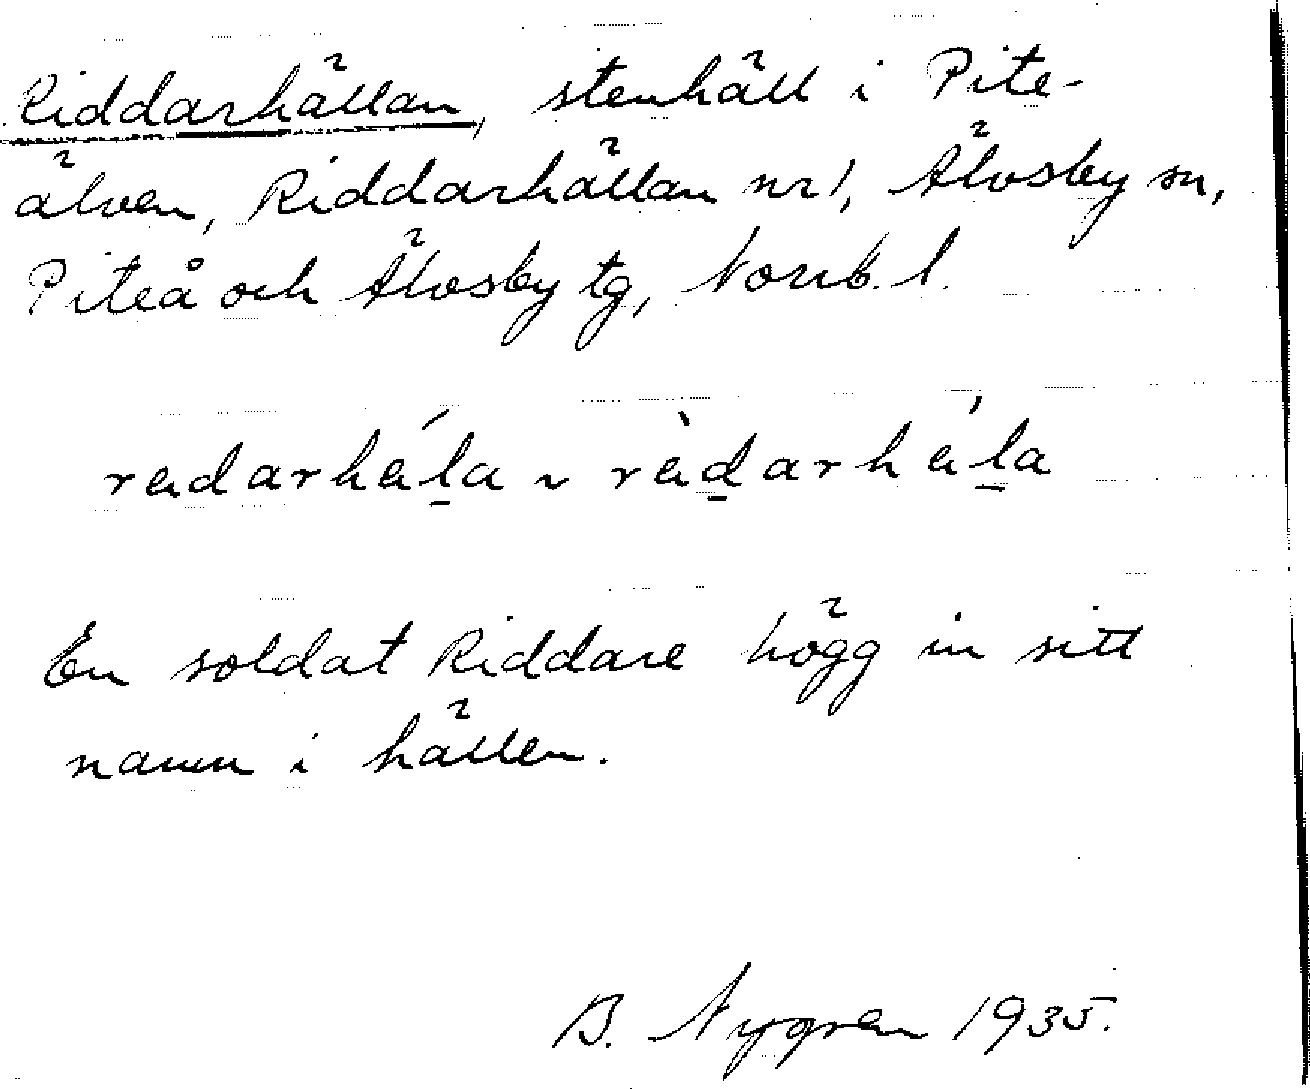 Riddarhällan, stenhäll i Pite-
älven, Riddarhällan nr 1, Älvsby sn,
Piteå och Älvsby tg, Norrb. l.
redarhéla ~ rèdarhéla
En soldat Riddare högg in sitt
namn i hällen.
B. Nygren 1935.